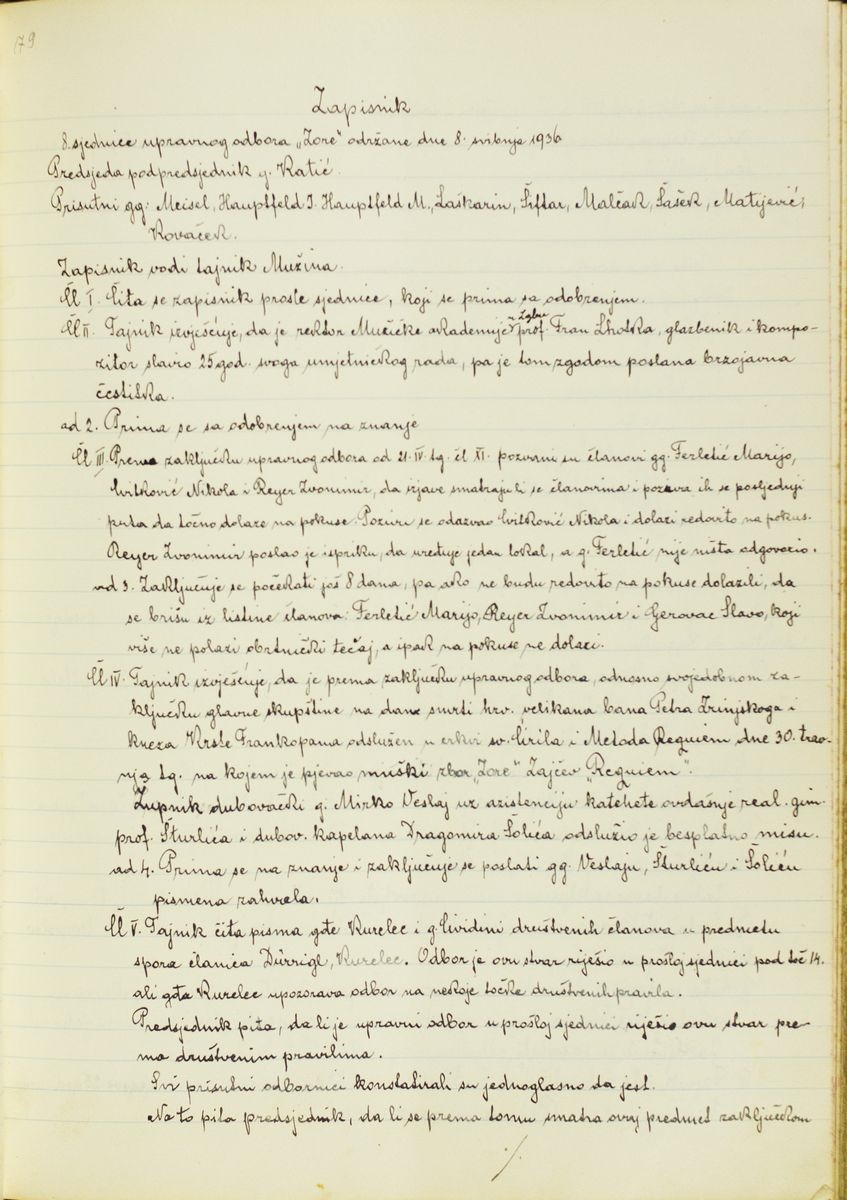 179
Zapisnik
8. sjednice upravnog odbora „Zore" održane dne 8. svibnja 1936
Predsjeda podpredsjednik g. Katić.
Prisutni gg: Meisel, Hauptfeld J. Hauptfeld M., Laškarin, Šiftar, Malčak, Šašek, Matijević,
Kovaček.
Zapisnik vodi tajnik Mužina.
Čl I. Čita se zapisnik prošle sjednice, koji se prima sa odobrenjem.
Čl II. Tajnik izvješćuje, da je rektor Muzičke akademije u Zgbu prof. Fran Lhotka, glazbenik i kompo-
zitor slavio 25 god. svoga umjetničkog rada, pa je tom zgodom poslana brzojavna
čestitka.
ad 2. Prima se sa odobrenjem na znanje
Čl III. Prema zaključku upravnog odbora od 21. IV. tg. čl XI. pozvani su članovi gg. Ferletić Marijo,
Cvitković Nikola i Reyer Zvonimir, da izjave smatraju li se članovima i poziva ih se posljednji
puta da točno dolaze na pokuse. Pozivu se odazvao Cvitković Nikola i dolazi redovito na pokus.
Reyer Zvonimir poslao je ispriku, da uređuje jedan lokal, a g. Ferletić nije ništa odgovorio.
ad 3. Zaključuje se počekati još 8 dana, pa ako ne budu redovito na pokuse dolazili, da
se brišu iz listine članova: Ferletić Marijo, Reyer Zvonimir i Gerovac Slavo, koji
više ne polazi obrtnički tečaj, a ipak na pokuse ne dolazi.
Čl IV. Tajnik izvješćuje, da je prema zaključku upravnog odbora, odnosno svojedobnom za-
ključku glavne skupštine na dan smrti hrv. velikana bana Petra Zrinjskoga i
kneza Krste Frankopana odslužen u crkvi sv. Ćirila i Metoda Requiem dne 30. trav-
nja tg. na kojem je pjevao muški zbor „Zore" Zajčev „Requiem".
Župnik dubovački g. Mirko Veslaj uz azistenciju katehete ovdašnje real. gim.
prof. Šturlića i dubov. kapelana Dragomira Šolića odslužio je besplatno misu.
ad 4. Prima se na znanje i zaključuje se poslati gg. Veslaju, Šturliću i Šoliću
pismena zahvala.
Čl V. Tajnik čita pisma gđe Kurelec i g. Cividini društvenih članova u predmetu
spora članica Dürrigl, Kurelec. Odbor je ovu stvar riješio u prošloj sjednici pod toč 14.
ali gđa Kurelec upozorava odbor na neskoje točke društvenih pravila.
Predsjednik pita, da li je upravni odbor u prošloj sjednici riješio ovu stvar pre-
ma društvenim pravilima.
Svi prisutni odbornici konstatirali su jednoglasno da jest.
Na to pita predsjednik, da li se prema tomu smatra ovaj predmet zaključkom
./.